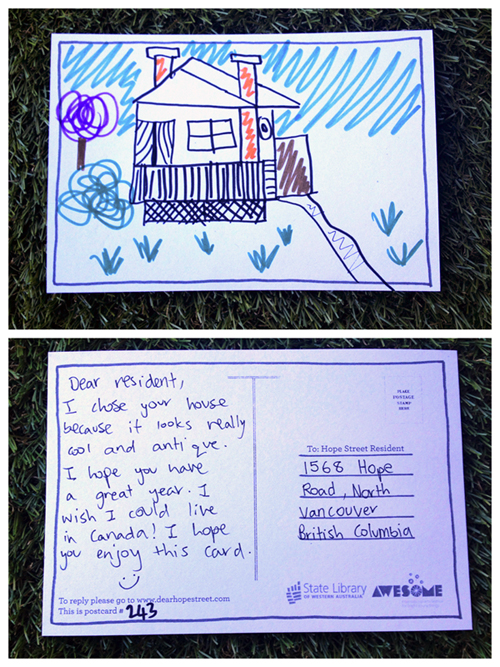 Dear resident,
I chose your house
because it looks really
cool and antique.
I hope you have
a great year. I
wish I could live
in Canada! I hope
you enjoy this card.
To reply please go to www.dearhopestreet.com
This is postcard # 243
PLACE
POSTAGE
STAMP
HERE
To: Hope Street Resident
1568 Hope
Road, North
Vancouver
British Columbia
State Library
OF WESTERN AUSTRALIA
AWESOME